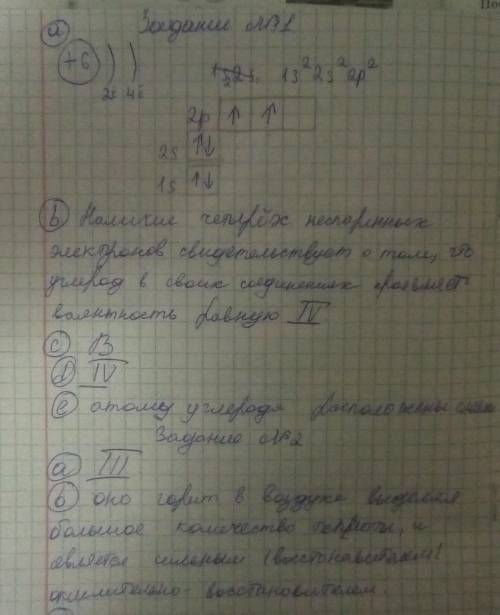 а Задание №1
+6 ) ) 1s²2s²2p²
2ē 4ē
2p ↑ ↑
2s ↑↓
1s ↑↓
b Наличие четырёх неспаренных
электронов свидетельствует о том, что
углерод в своих соединениях проявляет
валентность равную IV
c В
d IV
e атомы углерода расположены
Задание №2
а III
b оно горит в воздухе выделяя
большое количество теплоты, и
является сильным (восстановителем)
окислительно-восстановителем.